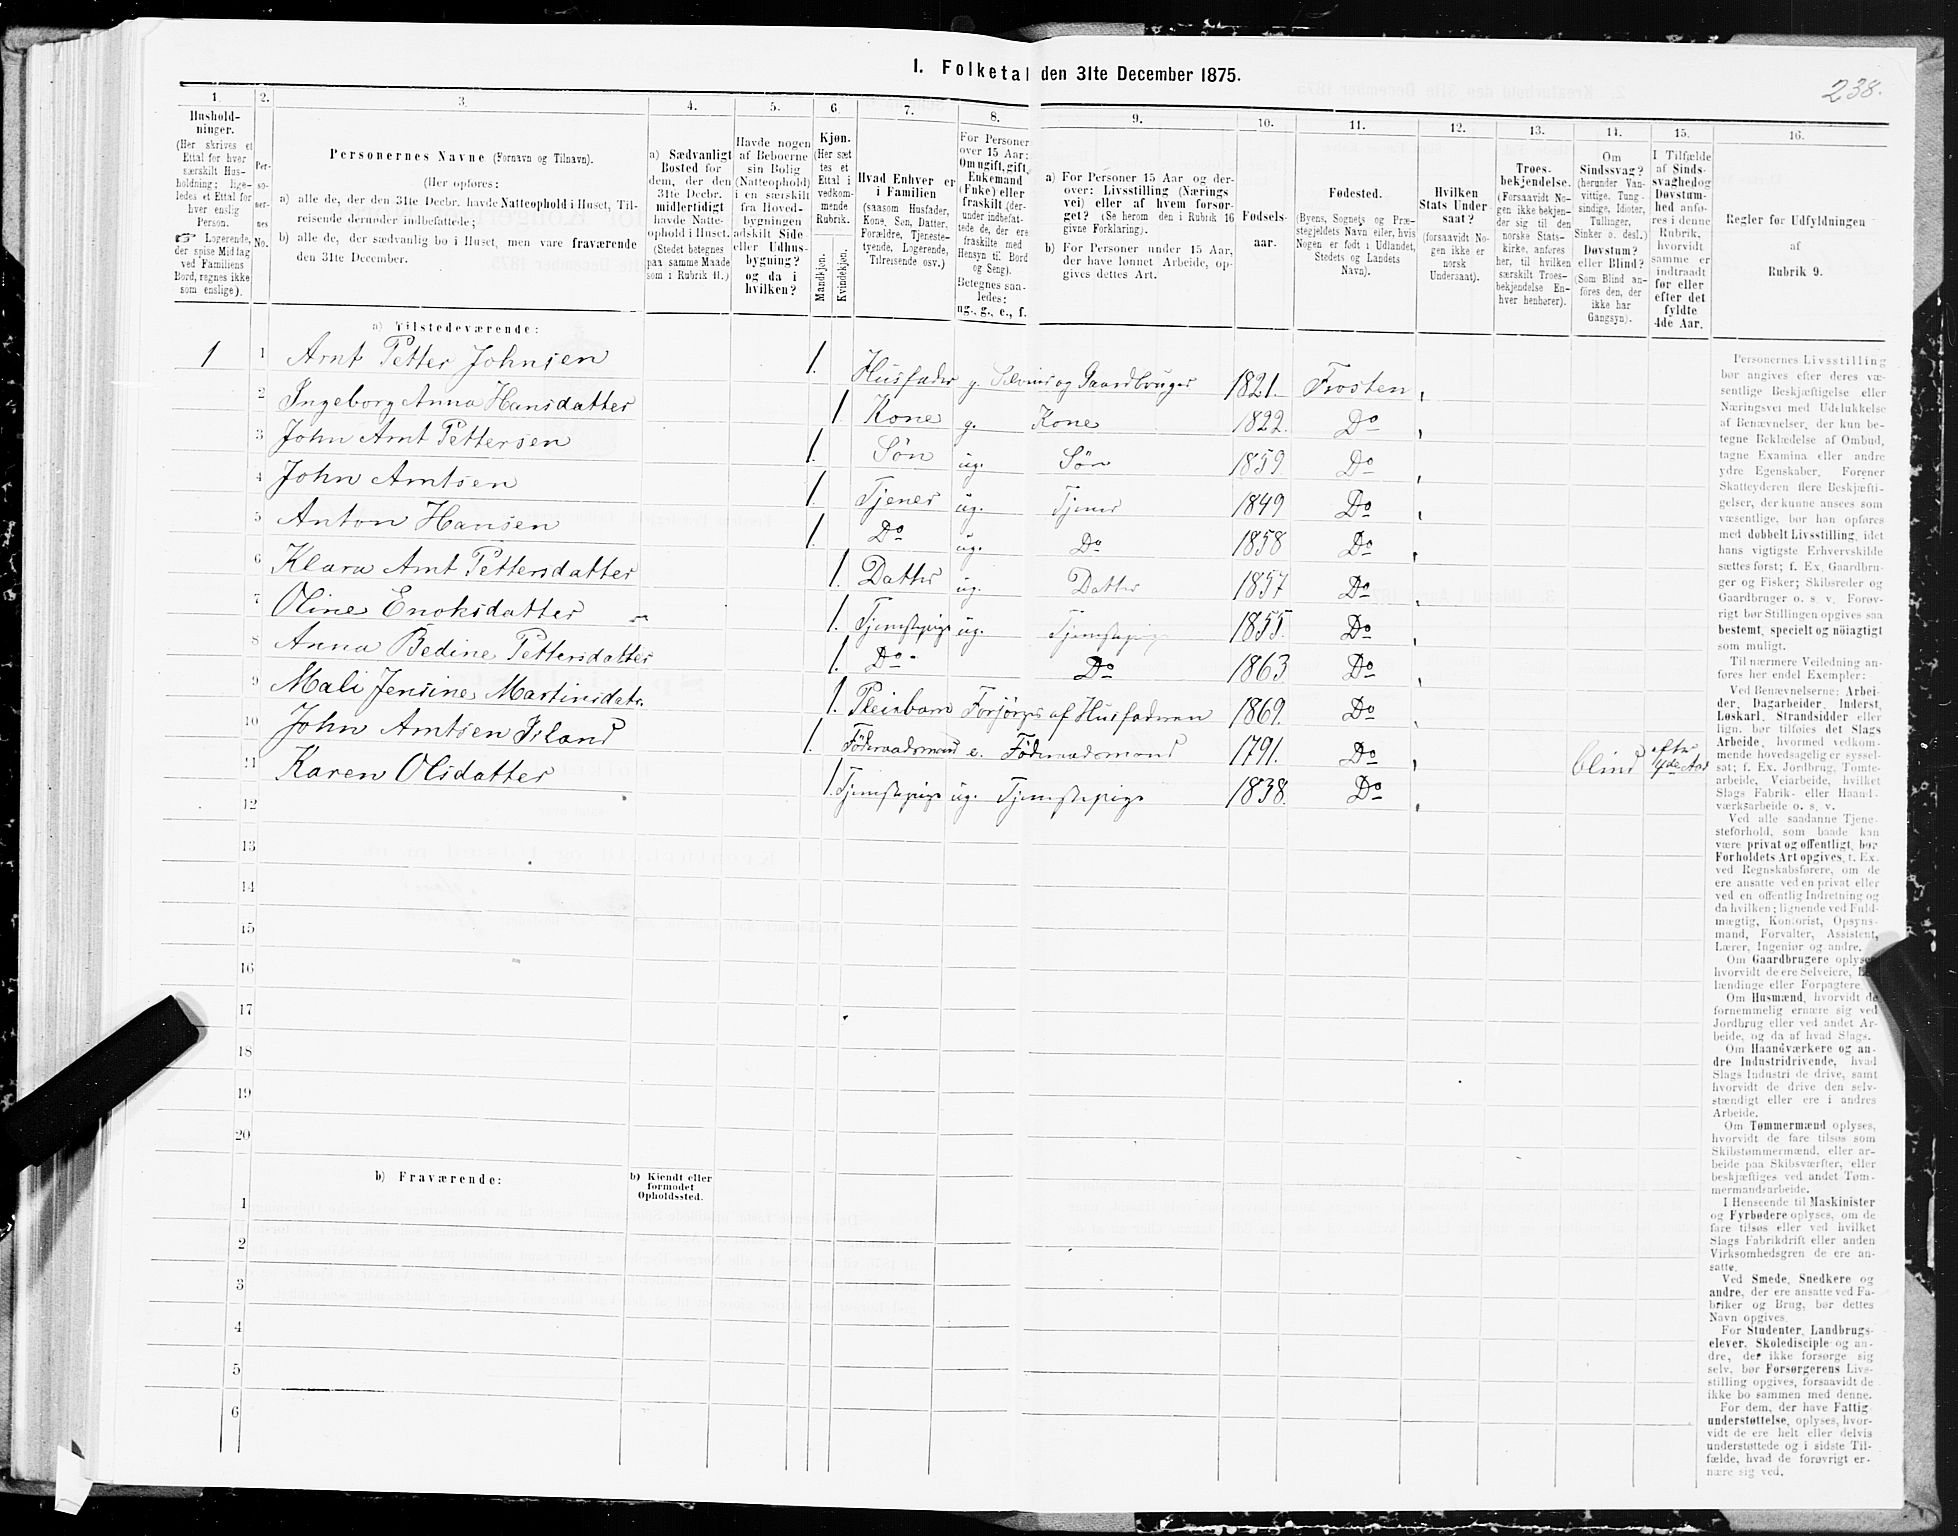 1. Folketal den 31te December 1875.
238.
1. 2. 3. 4. 5. 6. 7. 8. 9. 10. 11. 12. 13. 14. 15. 16.
Hushold-
ninger.
(Her skrives et
Ettal for hver
særskilt Hus-
holdning; lige-
ledes et Ettal for
hver enslig
Person.
☞ Logerende,
der spise Middag
ved Familiens
Bord, regnes ikke
som enslige).
Per-
so-
ner-
nes
No.
Personernes Navne (Fornavn og Tilnavn).
(Her opføres:
a) alle de, der den 31te Decbr. havde Natteophold i Huset, Til-
reisende derunder indbefattede;
b) alle de, der sædvanlig bo i Huset, men vare fraværende
den 31te December.
a) Sædvanligt
Bosted for
dem, der den
31te Decbr.
midlertidigt
havde Natte-
ophold i Huset.
(Stedet betegnes
paa samme Maade
som i Rubrik 11.)
Havde nogen
af Beboerne
sin Bolig
(Natteophold)
i en særskilt
fra Hoved-
bygningen
adskilt Side
eller Udhus-
bygning?
og da i
hvilken?
Kjøn.
(Her sæt
tes et
Ettal i
vedkom-
mende
Rubrik.
Mandkjøn.
Kvindekjøn.
Hvad Enhver er
i Familien
(saasom Husfader,
Kone, Søn, Datter,
Forældre, Tjeneste-
tyende, Logerende,
Tilreisende osv.)
For Personer
over 15 Aar:
Om ugift, gift,
Enkemand
(Enke) eller
fraskilt (der-
under indbefat-
tede de, der ere
fraskilte med
Hensyn til Bord
og Seng).
Betegnes saa-
ledes:
ug., g., e., f.
a) For Personer 15 Aar og der-
over: Livsstilling (Nærings
vei) eller af hvem forsør-
get? (Se herom den i Rubrik 16
givne Forklaring).
b) For Personer under 15 Aar,
der have lønnet Arbeide, op-
gives dettes Art.
Fødsels-
aar.
Fødested.
(Byens, Sognets og Præ-
stegjeldets Navn eller, hvis
Nogen er født i Udlandet,
Stedets og Landets
Navn).
Hvilken
Stats Under-
saat?
(forsaavidt No-
gen ikke er
norsk
Undersaat).
Troes-
bekjendelse.
(Forsaavidt No-
gen ikke bekjen-
der sig til den
norske Stats-
kirke, anføres
her, til hvilken
særskilt Troes-
bekjendelse En-
hver henhører).
Om
Sindssvag?
(herunder Van-
vittige, Tung-
sindige, Idioter,
Tullinger,
Sinker o. desl.)
Døvstum?
eller Blind?
(Som Blind an-
føres den, der
ikke har
Gangsyn).
I Tilfælde
af Sinds-
svaghed og
Døvstum-
hed anfø-
res i denne
Rubrik,
hvorvidt
samme er
indtraadt
før eller
efter det
fyldte
4de Aar.
Regler for Udfyldningen
af
Rubrik 9.
a) Tilstedeværende:
1 1 Arnt Petter Johnsen 1. Husfader g. Selveier og Gaardbruger 1821. Frosten
2 Ingeborg Anna Hansdatter 1 Kone g. Kone 1822. Do
3 John Arnt Pettersen 1. Søn ug. Søn 1859. Do
4 John Arntsen 1 Tjener ug. Tjener 1849 Do
5 Anton Hansen 1. Do ug. Do 1858 Do
6 Klara Arnt Pettersdatter 1. Datter ug. Datter 1857 Do
7 Oline Enoksdatter 1. Tjenstepige ug. Tjenstepige 1855. Do
8 Anna Bedine Pettersdatter 1. Do Do 1863 Do
9 Mali Jensine Martinsdatr. 1. Pleiebarn Forsørges af Husfaderen 1869. Do
10 John Arntsen Island 1. Føderaadsmand e. Føderaadsmand 1791. Do blind efter 4de Aar
11 Karen Olsdatter 1. Tjenstepige ug. Tjenstepige 1838. Do
12
13
14
15
16
17
18
19
20
b) Fraværende:
b) Kjendt eller
formodet
Opholdssted.
1
2
3
4
5
6
Personernes Livsstilling
bør angives efter deres væ-
sentlige Beskjæftigelse eller
Næringsvei med Udelukkelse
af Benævnelser, der kun be-
tegne Beklædelse af Ombud,
tagne Examina eller andre
ydre Egenskaber. Forener
Skatteyderen flere Beskjæfti-
gelser, der kunne ansees som
væsentlige, bør han opføres
med dobbelt Livsstilling, idet
hans vigtigste Erhvervskilde
sættes først; f. Ex. Gaardbru-
ger og Fisker; Skibsreder og
Gaardbruger o. s. v. Forøv-
rigt bør Stillingen opgives saa
bestemt, specielt og nöiagtigt
som muligt.
Til nærmere Veiledning an-
føres her endel Exempler:
Ved Benævnelserne: Arbei-
der, Dagarbeider, Inderst,
Løskarl, Strandsidder eller
lign. bør tilføies det Slags
Arbeide, hvormed vedkom-
mende hovedsagelig er syssel-
sat; f. Ex. Jordbrug, Tomte-
arbeide, Veiarbeide, hvilket
Slags Fabrik- eller Haand-
værksarbeide o. s. v.
Ved alle saadanne Tjene-
steforhold, som baade kan
være privat og offentligt, bør
Forholdets Art opgives, t. Ex.
ved Regnskabsførere, om de
ere ansatte ved en privat eller
ved en offentlig Indretning og
da hvilken; lignende ved Fuld-
mægtig, Kontorist, Opsyns-
mand, Forvalter, Assistent,
Lærer, Ingeniør og andre.
Om Gaardbrugere oplyses,
hvorvidt de ere Selveiere, Lei-
lændinge eller Forpagtere.
Om Husmænd, hvorvidt de
fornemmelig ernære sig ved
Jordbrug eller ved andet Ar-
beide, og da af hvad Slags.
Om Haandværkere og an-
dre Industridrivende, hvad
Slags Industri de drive, samt
hvorvidt de drive den selv-
stændigt eller ere i andres
Arbeide.
Om Tømmermænd oplyses,
hvorvidt de fare tilsøs som
Skibstømmermænd, eller ar-
beide paa Skibsværfter, eller
beskjæftiges ved andet Tøm-
mermandsarbeide.
I Henseende til Maskinister
og Fyrbødere oplyses, om de
fare tilsøs eller ved hvilket
Slags Fabrikdrift eller anden
Virksomhedsgren de ere an-
satte.
Ved Smede, Snedkere og
andre, der ere ansatte ved Fa-
briker og Brug, bør dettes
Navn opgives.
For Studenter, Landbrugs-
elever, Skoledisciple og an-
dre, der ikke forsørge sig
selv, bør Forsørgerens Livs-
stilling opgives, forsaavidt de
ikke bo sammen med denne.
For dem, der have Fattig-
understøttelse, oplyses, hvor-
vidt de ere helt eller delvis
understøttede og i sidste Til-
fælde, hvad de forøvrigt er-
nære sig ved.